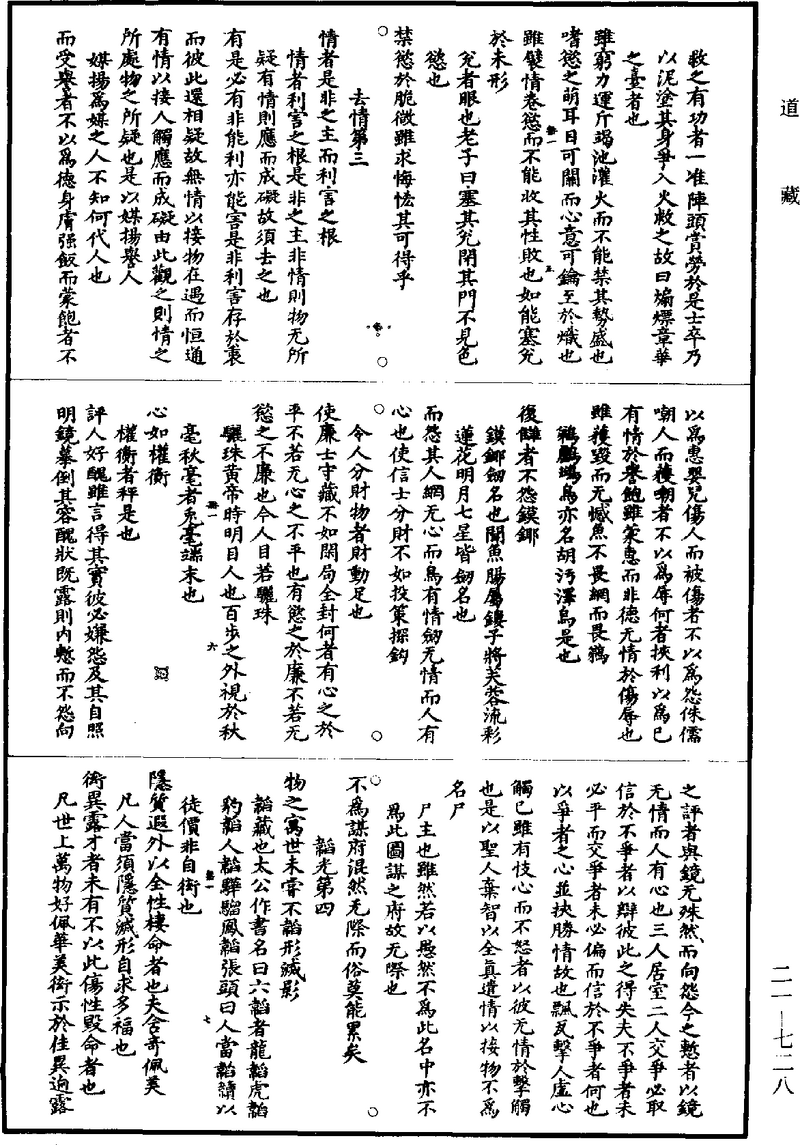 道藏
救之有功者一准陣頭賞勞於是士卒乃
以泥塗其身爭入火救之故曰煽熛章華
之臺者也
雖窮力運斤竭池灌火而不能禁其勢盛也
嗜慾之萌耳目可關而心意可鑰至於熾也
雖襞情卷慾而不能收其性敗也如能塞兊
於未形
兊者眼也老子曰塞其兊閉其門不見色
慾也
禁慾於脆微雖求悔恡其可得乎
去情第三
情者是非之主而利害之根
情者利害之根是非之主非情則物无所
疑有情則應而成礙故須去之也
有是必有非能利亦能害是非利害存於衷
而彼此還相疑故無情以接物在遇而恒通
有情以接人觸應而成礙由此觀之則情之
所處物之所疑也是以媒揚譽人
媒揚爲媒之人不知何代人也
而受譽者不以爲德身膚强飯而蒙飽者不
以爲惠嬰兒傷人而被傷者不以爲怨侏儒
嘲人而獲嘲者不以爲辱何者挾利以爲己
有情於譽飽雖蒙惠而非德无情於傷辱也
雖獲毀而无憾魚不畏網而畏鵜
鵜鶘鴮鳥亦名胡污澤鳥是也
復讎者不怨鏌鋣
鏌鋣劒名也聞魚腸屬鏤子將芙蓉流彩
蓮花明月七星皆劒名也
而怨其人網无心而鳥有情劒无情而人有
心也使信士分財不如投策探鈎
令人分財物者財動足也
使廉士守藏不如閉局全封何者有心之於
平不若无心之不平也有慾之於廉不若无
慾之不廉也今人目若驪珠
驪珠黃帝時明目人也百步之外視於秋
毫秋毫者兎毫端末也
心如權衡
權衡者秤是也
評人好醜雖言得其實彼必嫌怨及其自照
明鏡摹倒其容醜狀既露則内慙而不怨向
之評者與鏡无殊然而向怨今之慙者以鏡
无情而人有心也三人居室二人交爭必取
信於不爭者以辯彼此之得失夫不爭者未
必平而交爭者未必偏而信於不爭者何也
以爭者之心並挾勝情故也飄瓦擊人虛心
觸己雖有忮心而不怒者以彼无情於擊觸
也是以聖人棄智以全真遣情以接物不爲
名尸
尸主也雖然若以愚然不爲此名中亦不
爲此圖謀之府故无際也
不爲謀府混然无際而俗莫能累矣
韜光第四
物之寓世未甞不韜形滅影
韜藏也太公作書名曰六韜者龍韜虎韜
豹韜人韜驊騮鳳韜張頭曰人當韜積以
徒價非自衒也
隱質遐外以全性棲命者也夫含奇佩美
衒異露才者未有不以此傷性毀命者也
凡人當須隱質滅形自求多福也
凡世上萬物好佩華美衒示於佳異逈露
二一—七二八